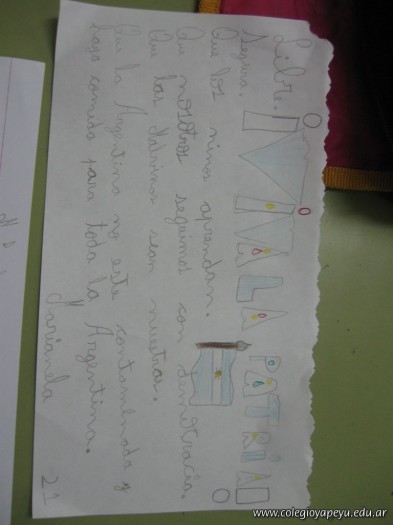 ¡VIVA LA PATRIA!
Libre.
Segura.
Que los niños aprendan.
Que nosotros seguimos con democracia.
Que las Malvinas sean nuestras.
Que la Argentina no este contaminada y
haga comida para toda la Argentina.
Marianela 21
www.colegioyapeyu.edu.ar